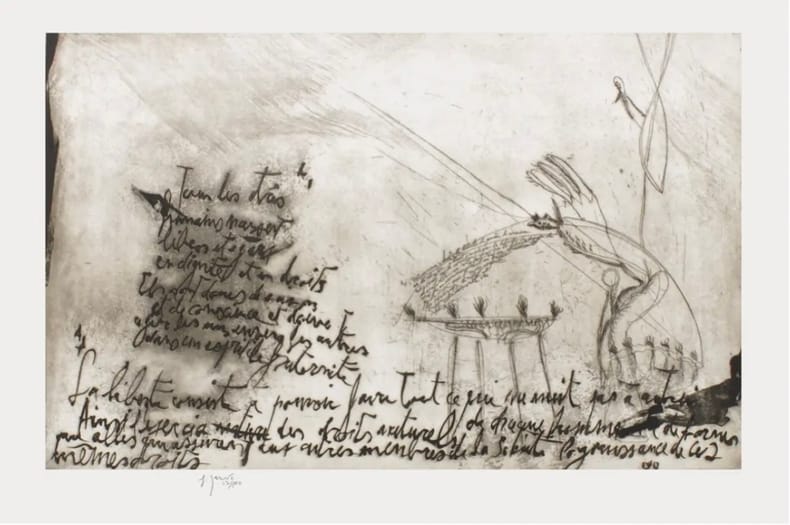 Tous les êtres
humains naissent
libres et égaux
en dignité et en droits
Ils sont doués de raison
et de conscience et doivent
agir les uns envers les autres
dans un esprit de fraternité
La liberté consiste à pouvoir faire tout ce qui ne nuit pas à autrui
Ainsi l'exercice des droits naturels de chaque homme
aux autres membres de la Société la jouissance de ces
mêmes droits